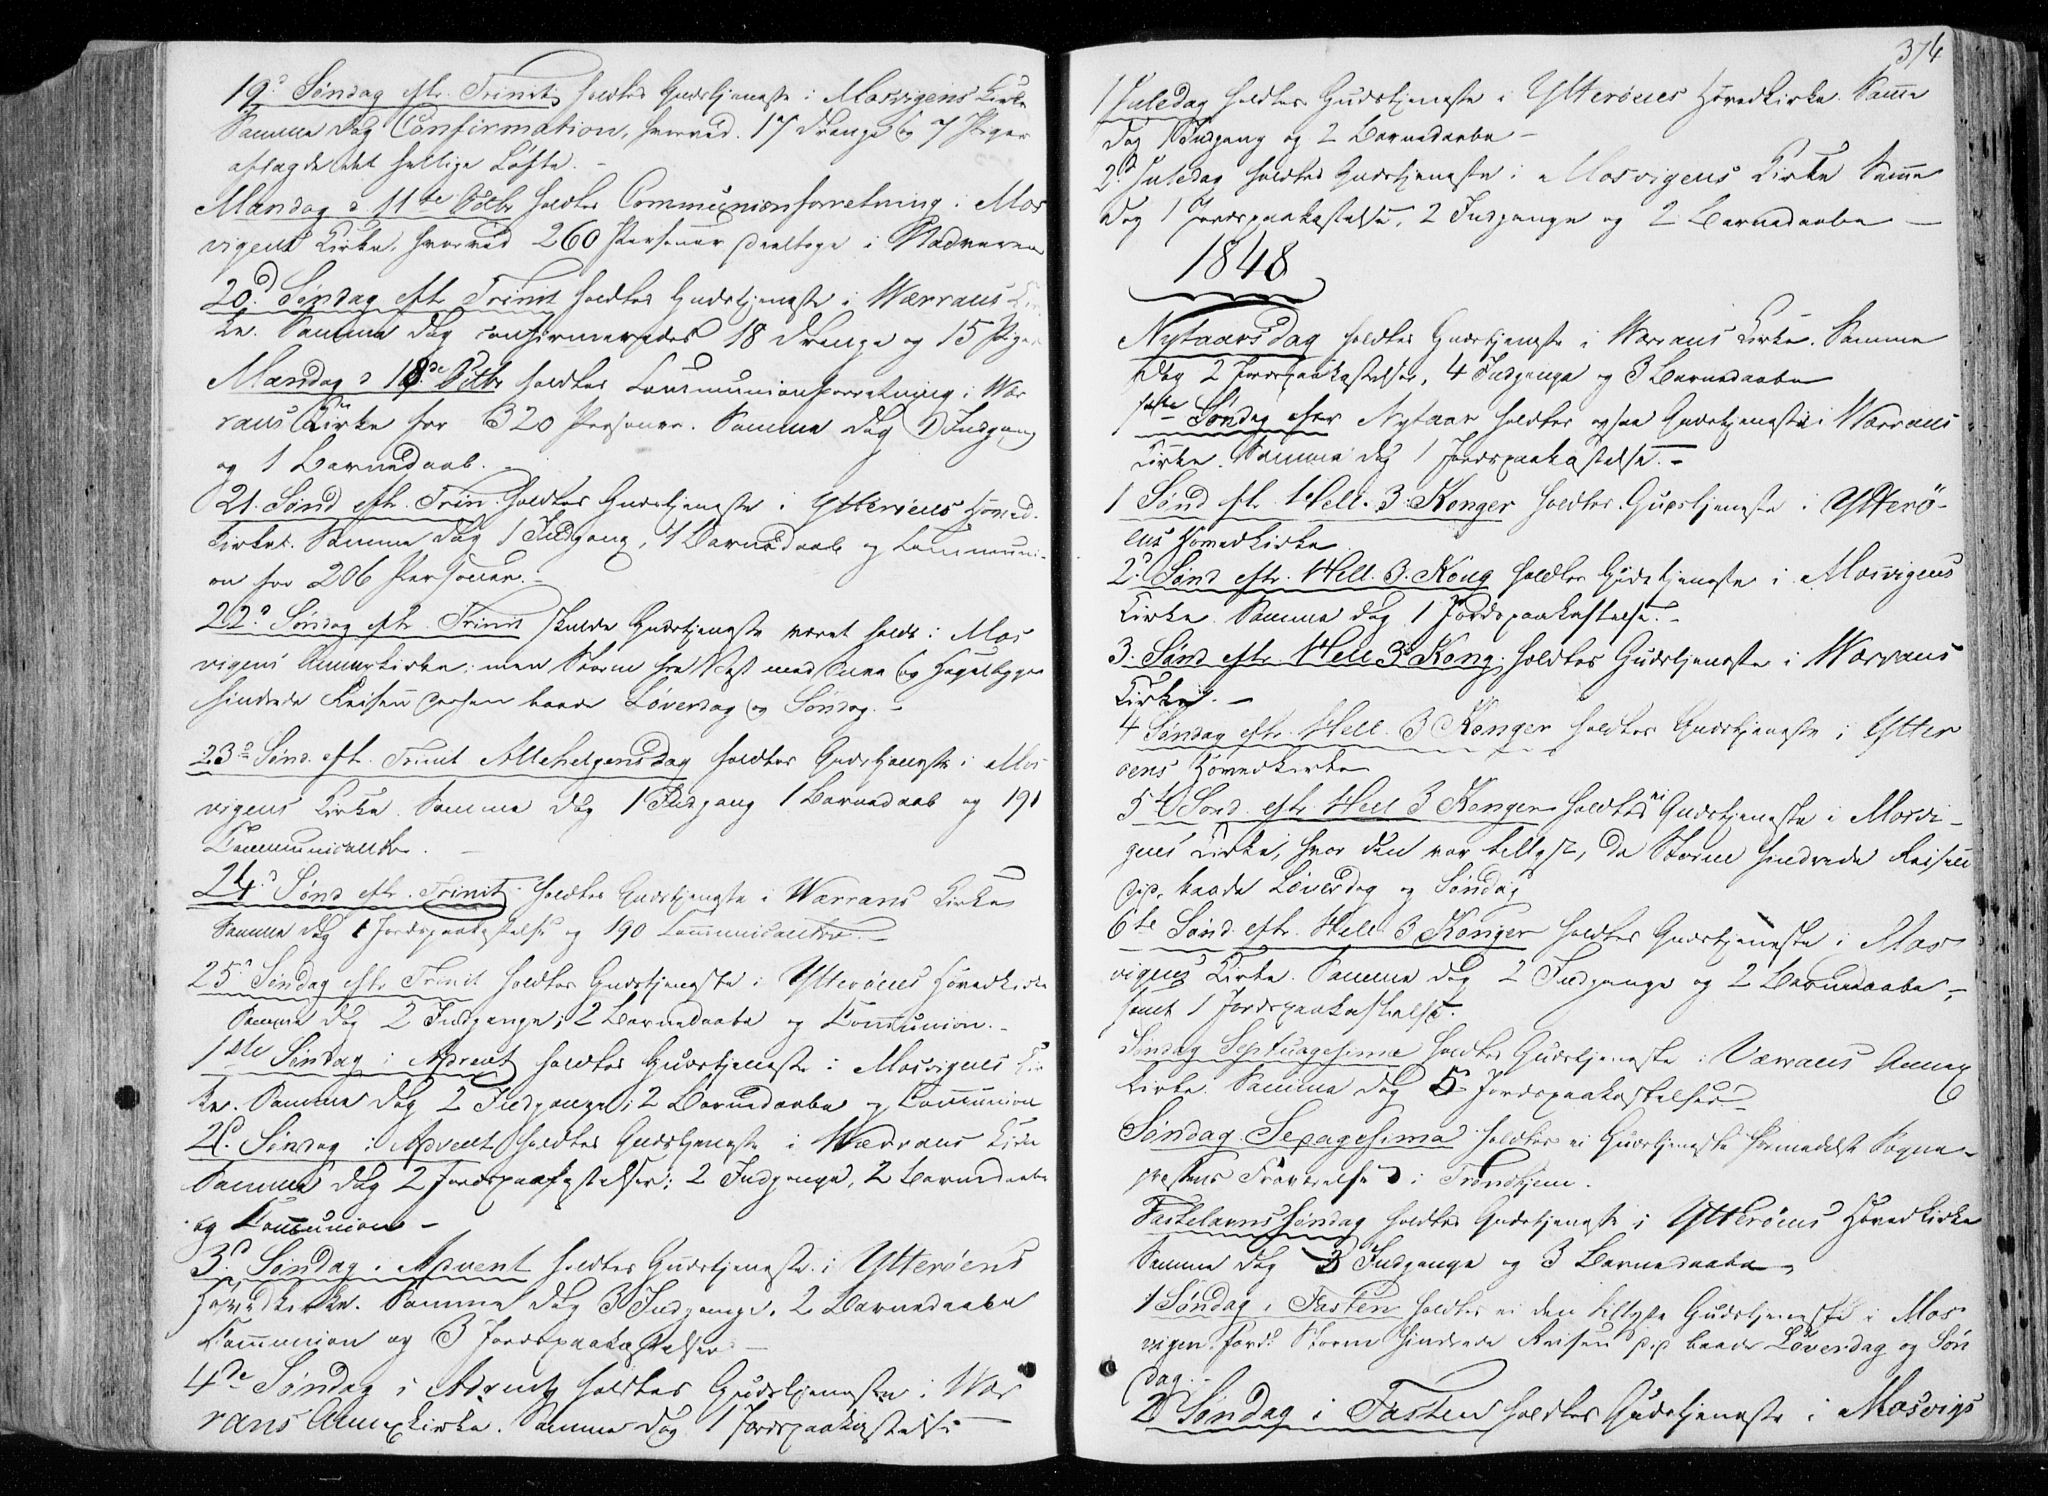 19d Søndag eft. Trinit. holdtes Gudstjeneste i Mosvigens Kirke
Samme Dag Confirmation, hvorved 17 Drenge og 7 Piger
aflagde det hellige Løfte. -
Mandag d 11te Octbr holdtes Communionforretning i Mos
vigens Kirke, hvorved 260 Personer deeltoge i Nadveren
20d. Søndag eftr Trinit holdtes Gudstjeneste i Værrans Kir
ke. Samme Dag confirmeredes 18 Drenge og 15 Piger
Mandag d 18de Octbr holdtes Communionforretning i Vær
rans Kirke for 320 Personer. Samme Dag 1 Indgang
og 1 Barnedaab.
21. Sønd eftr. Trin. holdtes Gudstjeneste i Ytterøens Hoved-
kirke. Samme Dag 1 Indgang, 1 Barnedaab og Communi-
on for 206 Personer. -
22d Søndag eftr. Trinit skulde Gudstjeneste været holdt i Mos
vigens Annexkirke; men Storm fra Vest med Snee og Hagelbyger
hindrede Reisen baade Løverdag og Søndag. -
23d Sønd. eft. Trinit Allehelgensdag holdtes Gudstjeneste i Mos
vigens Kirke. Samme Dag 1 Indgang 1 Barnedaab og 191
Communicantere. -
24d Sønd eftr. Trinit. holdtes Gudstjeneste i Værrans Kirke
Samme Dag 1 Jordspaakastelse og 190 Communicantere. -
25d Søndag eftr Trinit holdtes Gudstjeneste i Ytterøens Hovedkirke
Samme Dag 2 Indgange, 2 Barnedaabe og Communion. -
1ste Søndag i Advent holdtes Gudstjeneste i Mosvigens Kir
ke. Samme Dag 2 Indgange, 2 Barnedaabe og Communion
2d. Søndag i Advent holdtes Gudstjeneste i Værrans Kirke
Samme Dag 2 Jordspaakastelser; 2 Indgange, 2 Barnedaabe
og Communion -
3d. Søndag i Advent holdtes Gudstjeneste i Ytterøens
Hovedkirke. Samme Dag 3 Indgange, 2 Barnedaabe
Communion og 3 Jordspaakastelser -
4de Søndag i Advent holdtes Gudstjeneste i Vær
rans Annexkirke. Samme Dag 1 Jordspaakastelse -
374
1 Juledag holdtes Gudstjeneste i Ytterøens Hovedkirke. Samme
Dag 1 Indgang og 2 Barnedaabe -
2d Juledag holdtes Gudstjeneste i Mosvigens Kirke Samme
Dag 1 Jordspaakastelse, 2 Indgange og 2 Barnedaabe -
1848
Nytaarsdag holdtes Gudstjeneste i Værrans Kirke. Samme
Dag 2 Jordspaakastelser, 4 Indgange og 3 Barnedaabe
1ste Søndag efter Nytaar holdtes ogsaa Gudstjeneste i Værrans
Kirke. Samme Dag 1 Jordspaakastelse. -
1 Sønd eft. Hell. 3 Konger holdtes Gudstjeneste i Ytterø-
ens Hovedkirke
2d. Sønd eftr. Hell. 3. Kong holdtes Gudstjeneste i Mosvigens
Kirke. Samme Dag 1 Jordspaakastelse. -
3. Sønd eftr. Hell 3 Kong. holdtes Gudstjeneste i Værrans
Kirke. -
4 Søndag eftr. Hell. 3 Konger holdtes Gudstjeneste i Ytter
øens Hovedkirke
5te Sønd. eftr. Hell 3 Konger holdtes ei Gudstjeneste i Mosvi-
gens Kirke, hvor den var tillyst, da Storm hindrede Reisen
did, baade Løverdag og Søndag
6te Sønd. eftr. Hell. 3 Konger holdtes Gudstjeneste i Mos
vigens Kirke. Samme Dag 2 Indgange og 2 Barnedaabe,
samt 1 Jordspaakastelse. -
Søndag Septuagesima holdtes Gudstjeneste i Værrans Annex
kirke. Samme Dag 5 Jordspaakastelser. -
Søndag Sexagesima holdtes ei Gudstjeneste formedelst Sogne-
præstens Fraværelse i Trondhjem.
Fastelavns Søndag holdtes Gudstjeneste i Ytterøens Hovedkirke
Samme Dag 3 Indgange og 3 Barnedaabe
1 Søndag i Fasten holdtes ei den tillyste Gudstjeneste i Mos
vigen fordi Storm hindrede Reisen did baade Løverdag og Søn
dag. -
2 Søndag i Fasten holdtes Gudstjeneste i Mosvigs